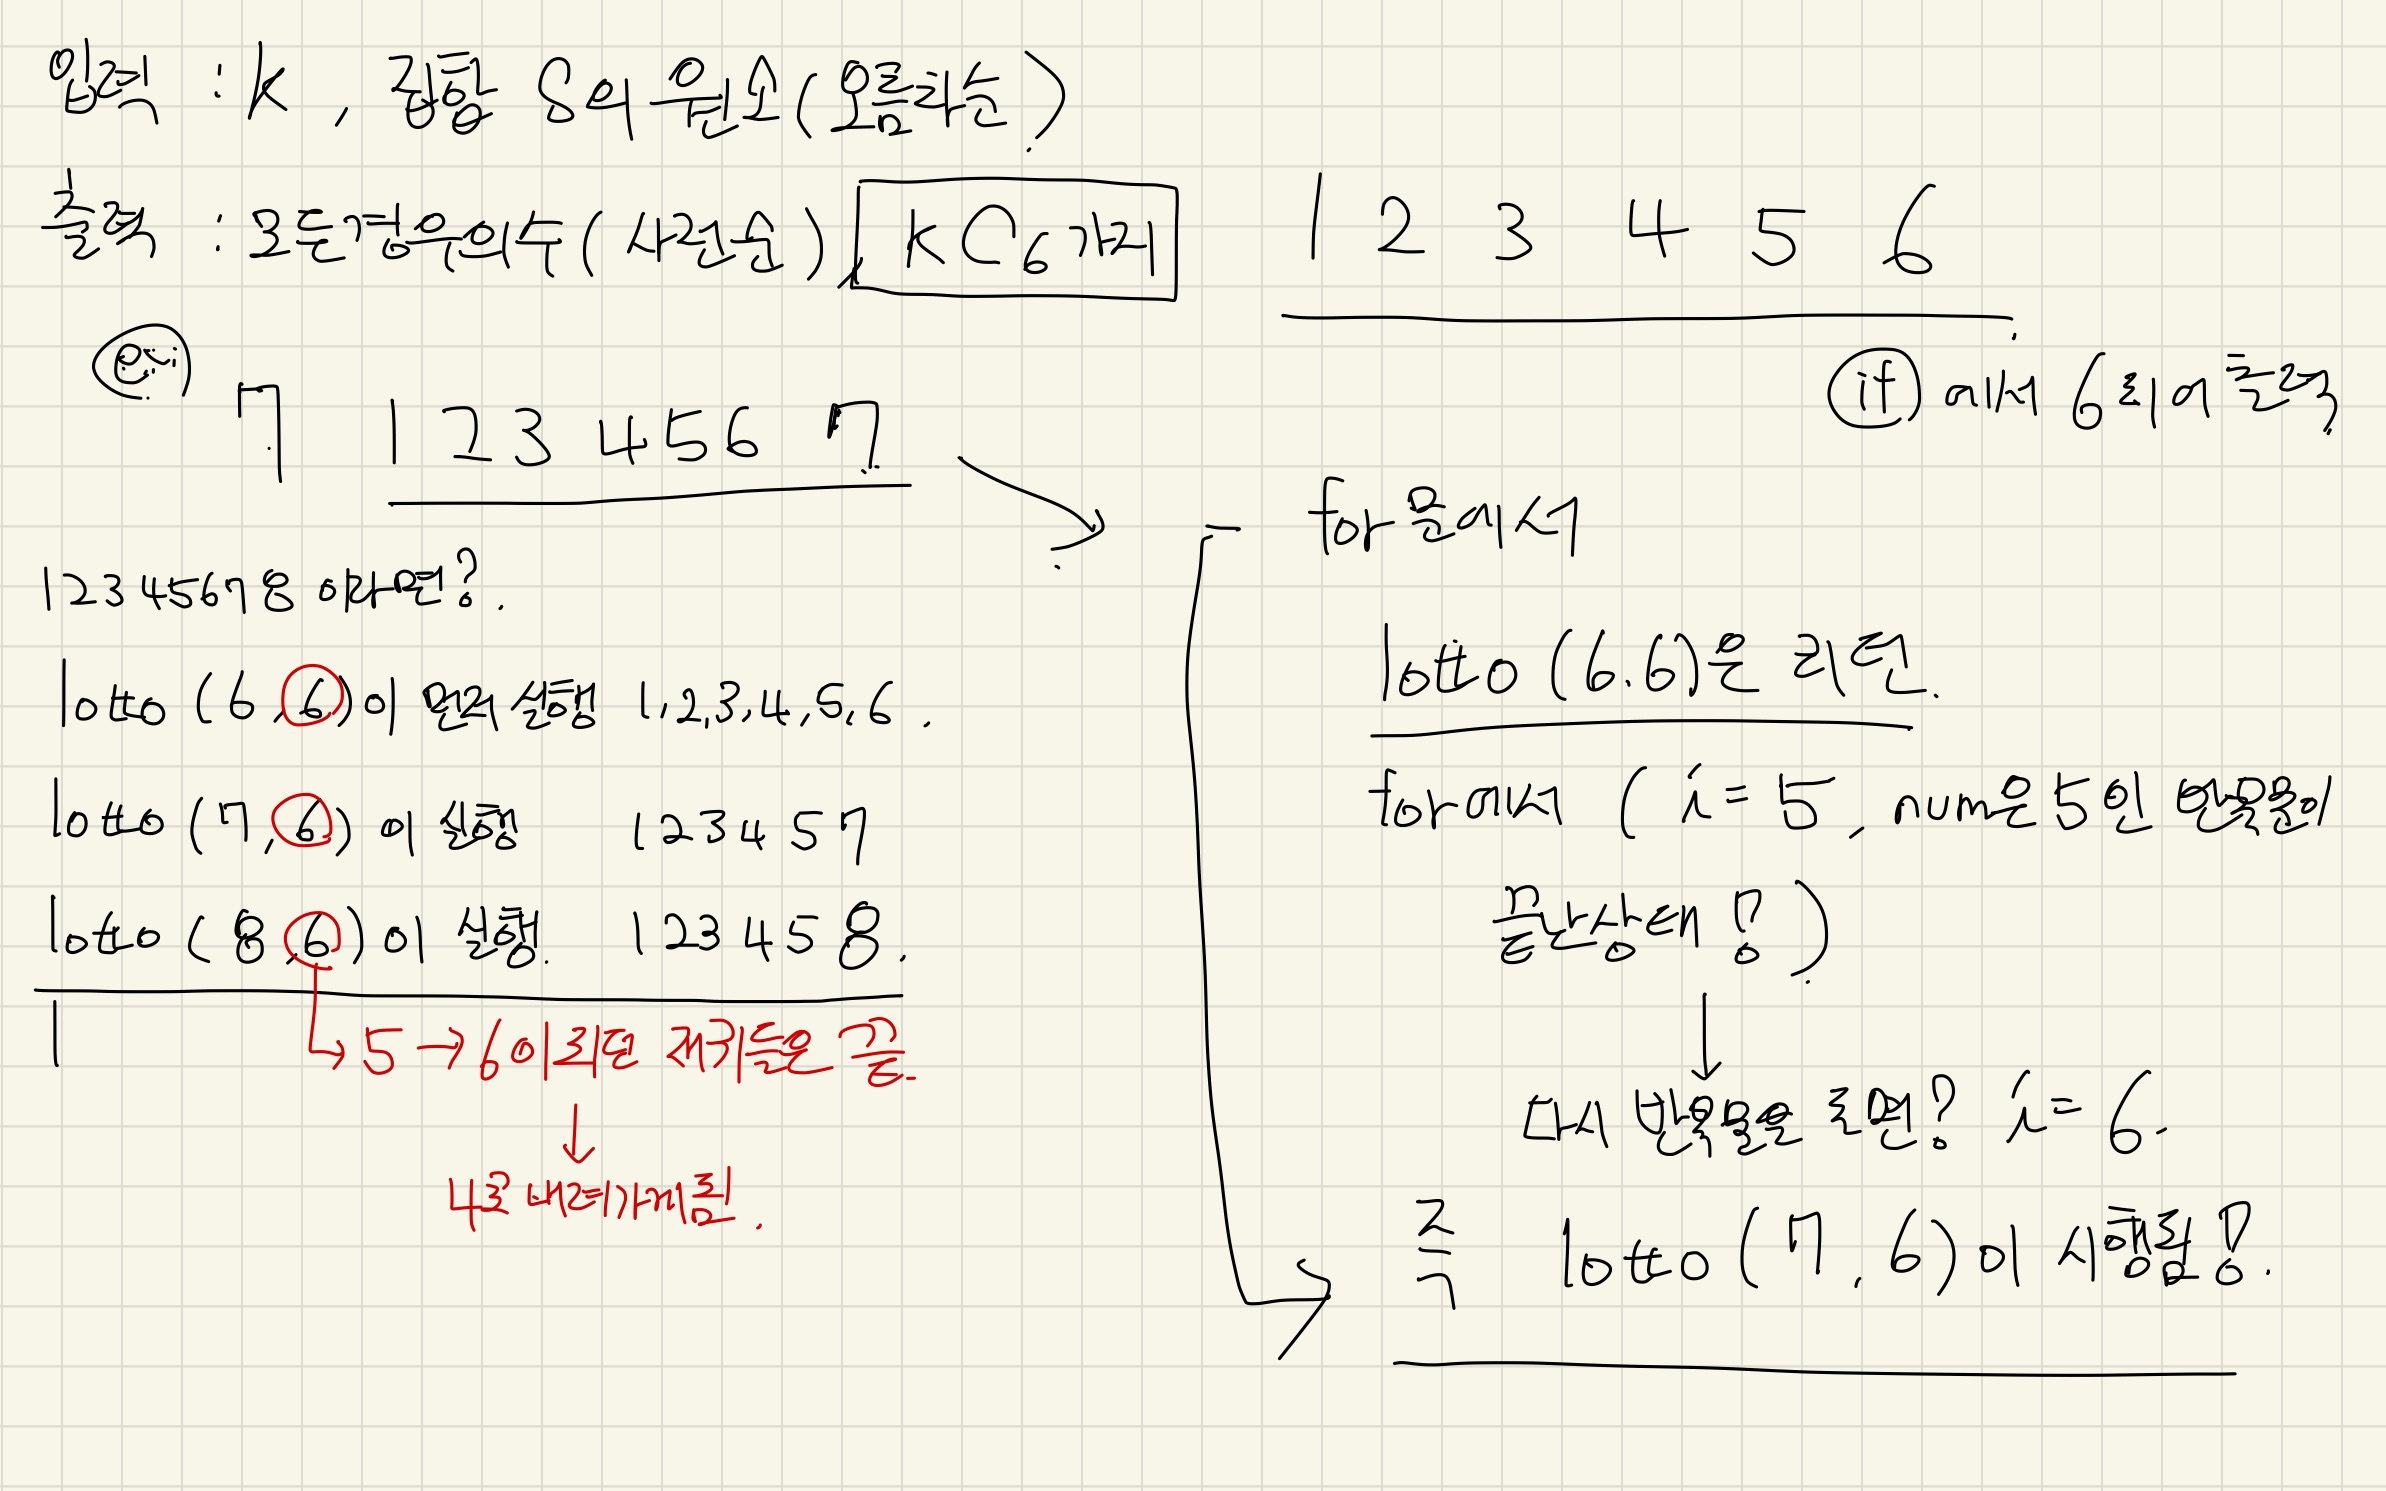 입력 : k, 집합 S의 원소(오름차순)
출력 : 모든경우의수(사전순), kC6가지
ex)
7 1 2 3 4 5 6 7
1 2 3 4 5 6 7 8 이라면?
lotto (6, 6)이 먼저 실행 1,2,3,4,5,6.
lotto (7, 6)이 실행 1 2 3 4 5 7
lotto (8, 6)이 실행. 1 2 3 4 5 8.
↳ 5 → 6이되던 재귀들은 끝.
↓
4로 내려가게됨.
1 2 3 4 5 6
if 에서 6되어 출력
for문에서
lotto (6.6)은 리턴.
for에서 ( i = 5, num은 5인 반복문이
끝난상태!)
↓
다시 반복문을 돌면? i = 6.
즉 lotto (7, 6)이 시행됨!